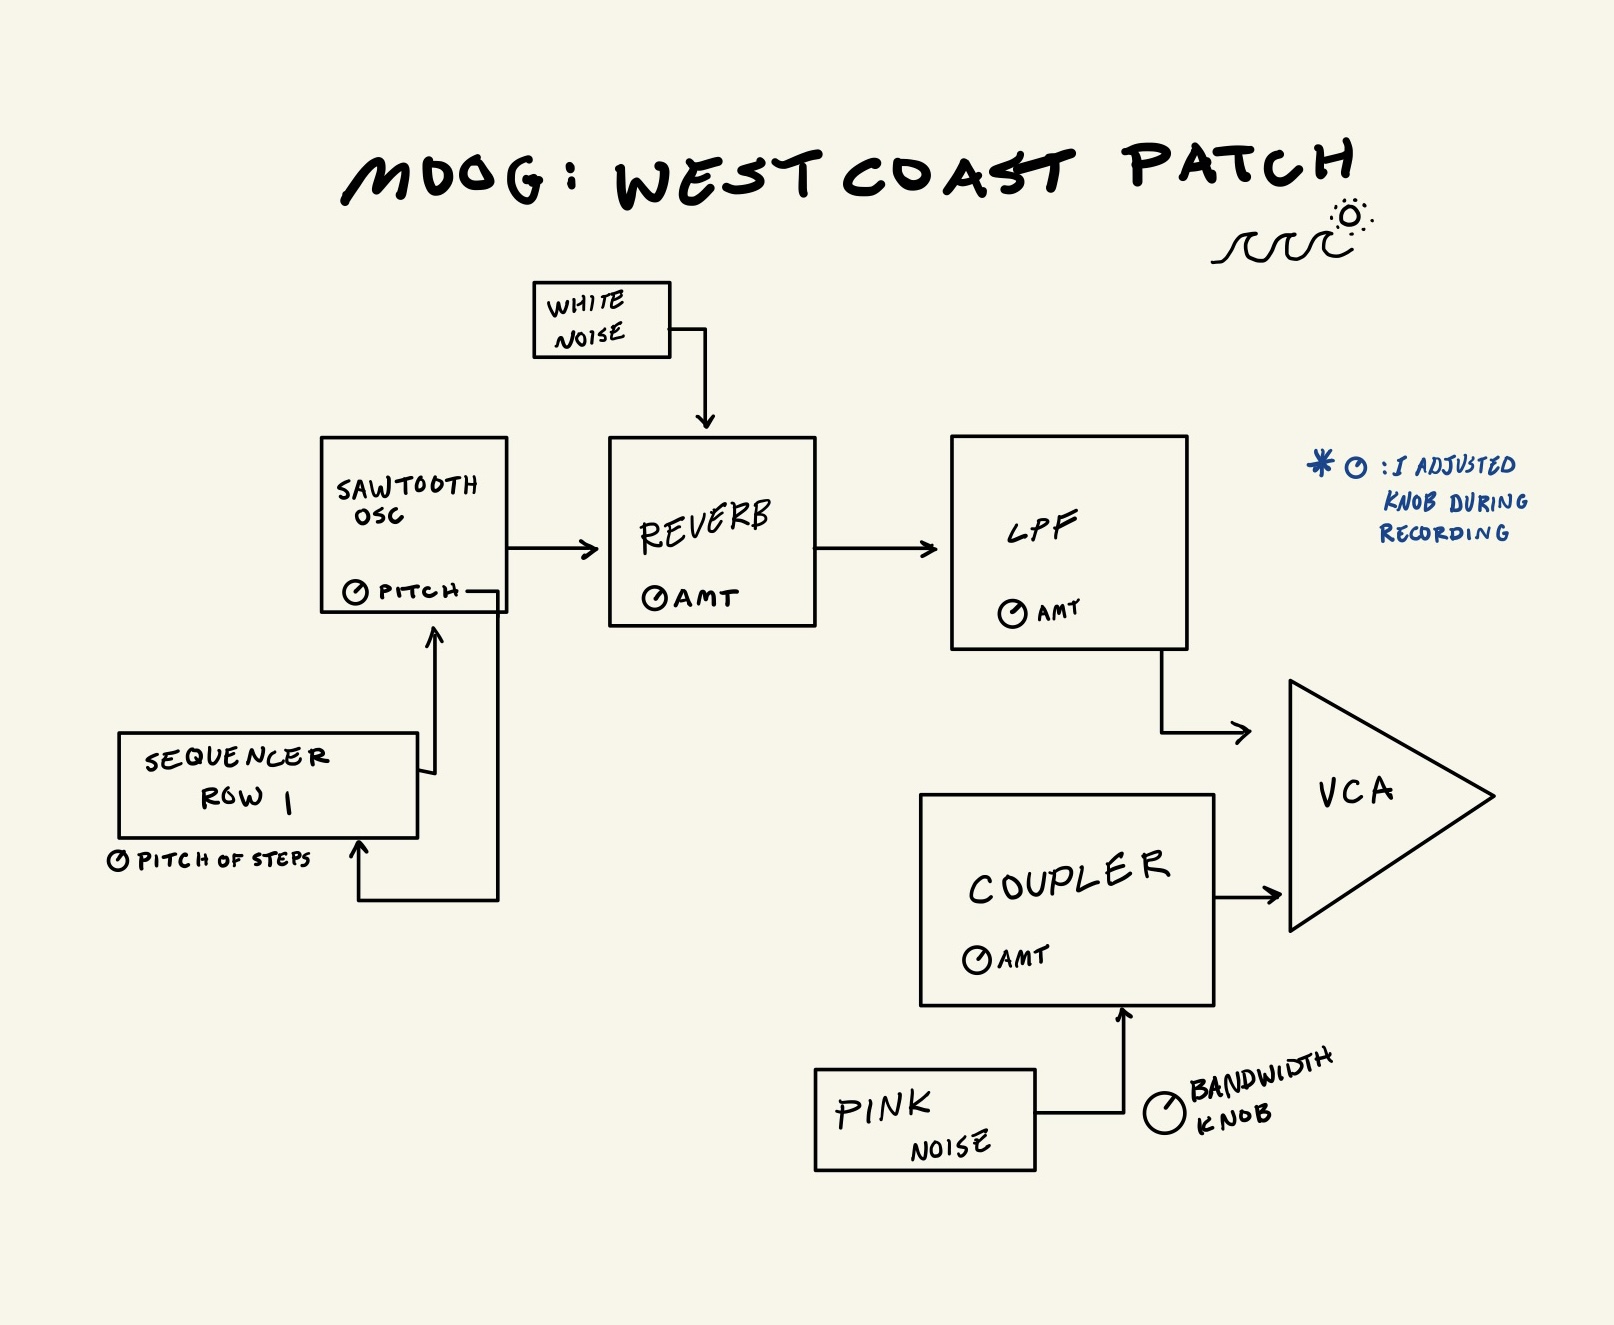 MOOG: WEST COAST PATCH
WHITE
NOISE
SAWTOOTH
OSC
PITCH
REVERB
AMT
LPF
AMT
* : I ADJUSTED
KNOB DURING
RECORDING
SEQUENCER
ROW 1
PITCH OF STEPS
VCA
COUPLER
AMT
PINK
NOISE
BANDWIDTH
KNOB